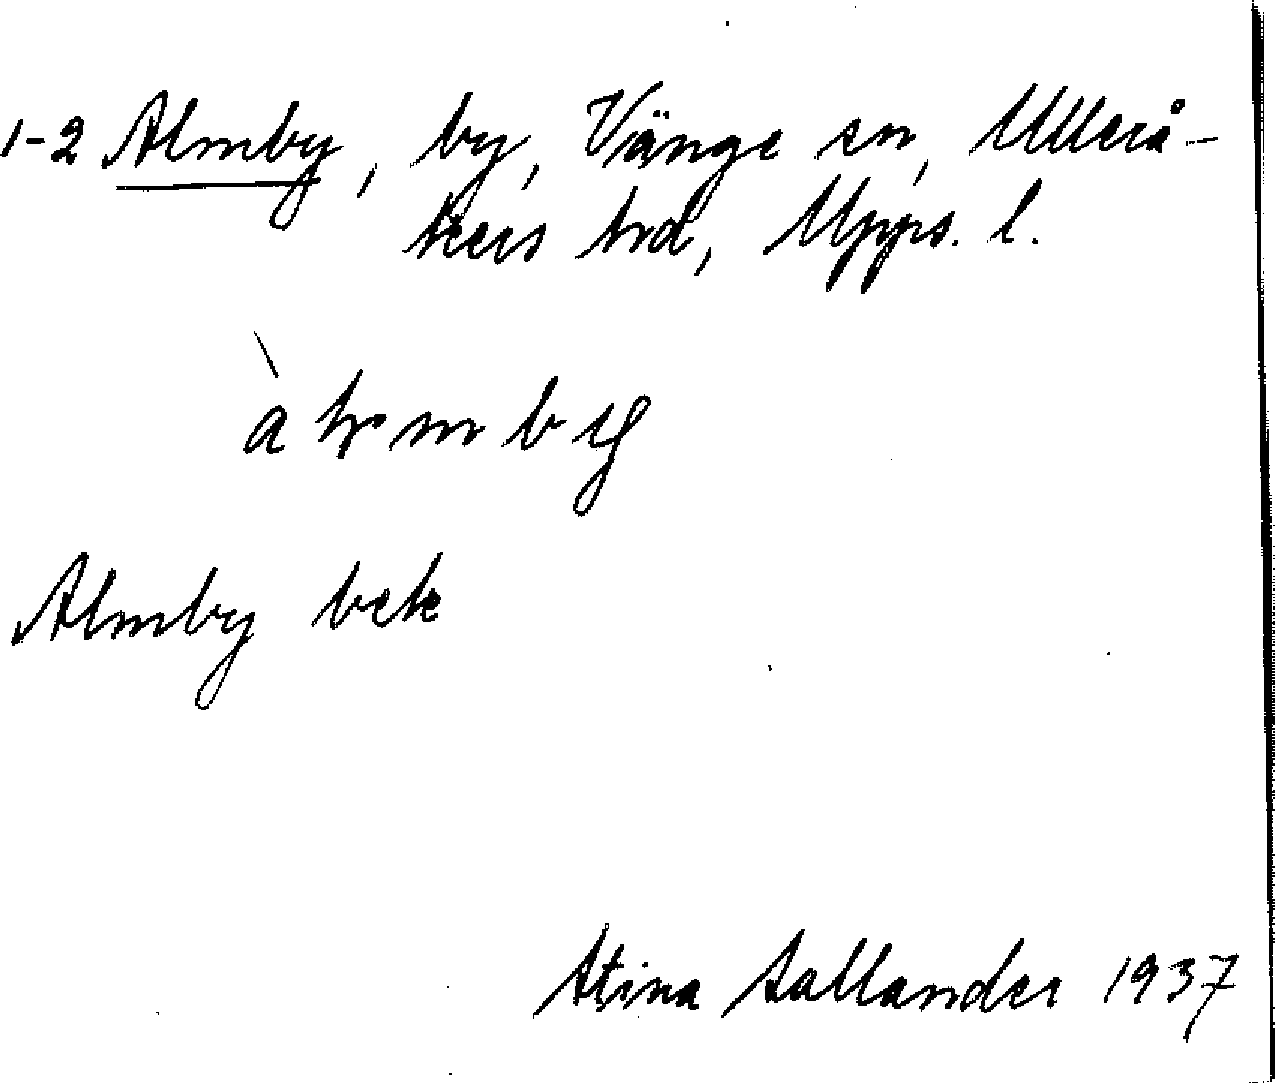 1-2 Almby, by, Vänge sn, Ullerå-
kers hrd, Upps. l.
Almby bek
Stina Sallander 1937